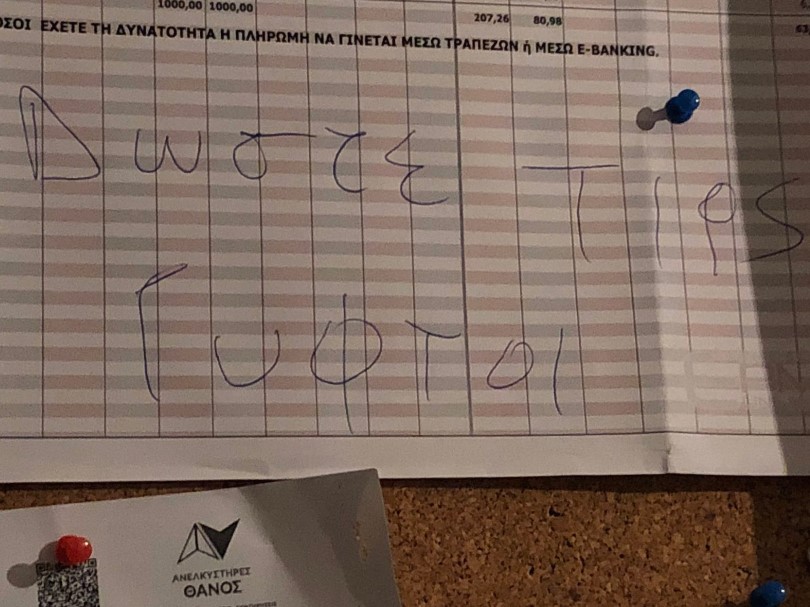 1000,00 1000,00
207,26 80,98
63,
ΟΣΟΙ ΕΧΕΤΕ ΤΗ ΔΥΝΑΤΟΤΗΤΑ Η ΠΛΗΡΩΜΗ ΝΑ ΓΙΝΕΤΑΙ ΜΕΣΩ ΤΡΑΠΕΖΩΝ ή ΜΕΣΩ E-BANKING.
Δωστε Tips
Γυφτοι
ΑΝΕΛΚΥΣΤΗΡΕΣ
ΘΑΝΟΣ